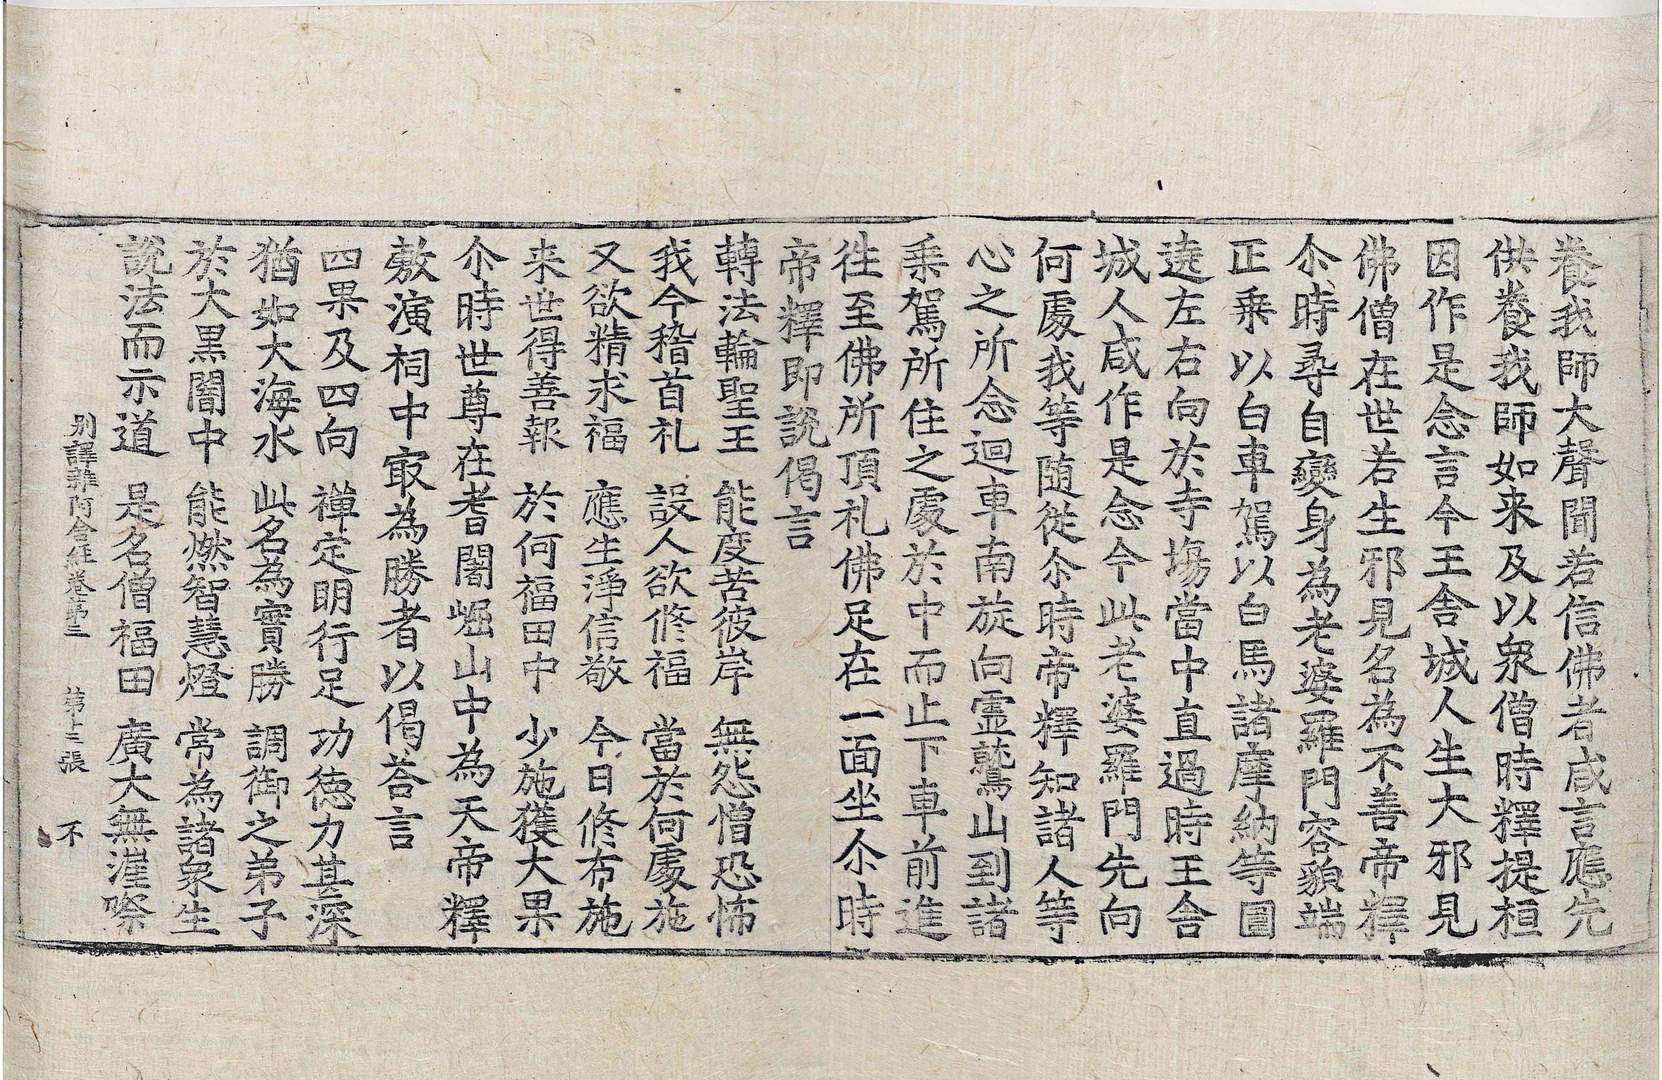 養我師大聲聞若信佛者咸言應先
供養我師如来及以衆僧時釋提桓
因作是念言今王舎城人生大邪見
佛僧在世若生邪見名為不善帝釋
尒時尋自變身為老婆羅門容貌端
正乗以白車駕以白馬諸摩納等圍
遶左右向於寺塲當中直過時王舎
城人咸作是念今此老婆羅門先向
何處我等随従尒時帝釋知諸人等
心之所念迴車南旋向霊鷲山到諸
乗駕所住之處於中而止下車前進
徃至佛所頂礼佛足在一面坐尒時
帝釋即説偈言
轉法輪聖王　能度苦彼岸　無怨憎恐怖
我今稽首礼　設人欲修福　當於何處施
又欲精求福　應生淨信敬　今日修布施
来世得善報　於何福田中　少施獲大果
尒時世尊在耆闍崛山中為天帝釋
敷演祠中㝡為勝者以偈荅言
四果及四向　禅定明行足　功徳力甚深
猶如大海水　此名為實勝　調御之弟子
於大黒闇中　能燃智慧燈　常為諸衆生
說法而示道　是名僧福田　廣大無涯際
别譯雜阿含経卷第三　第十三張　不